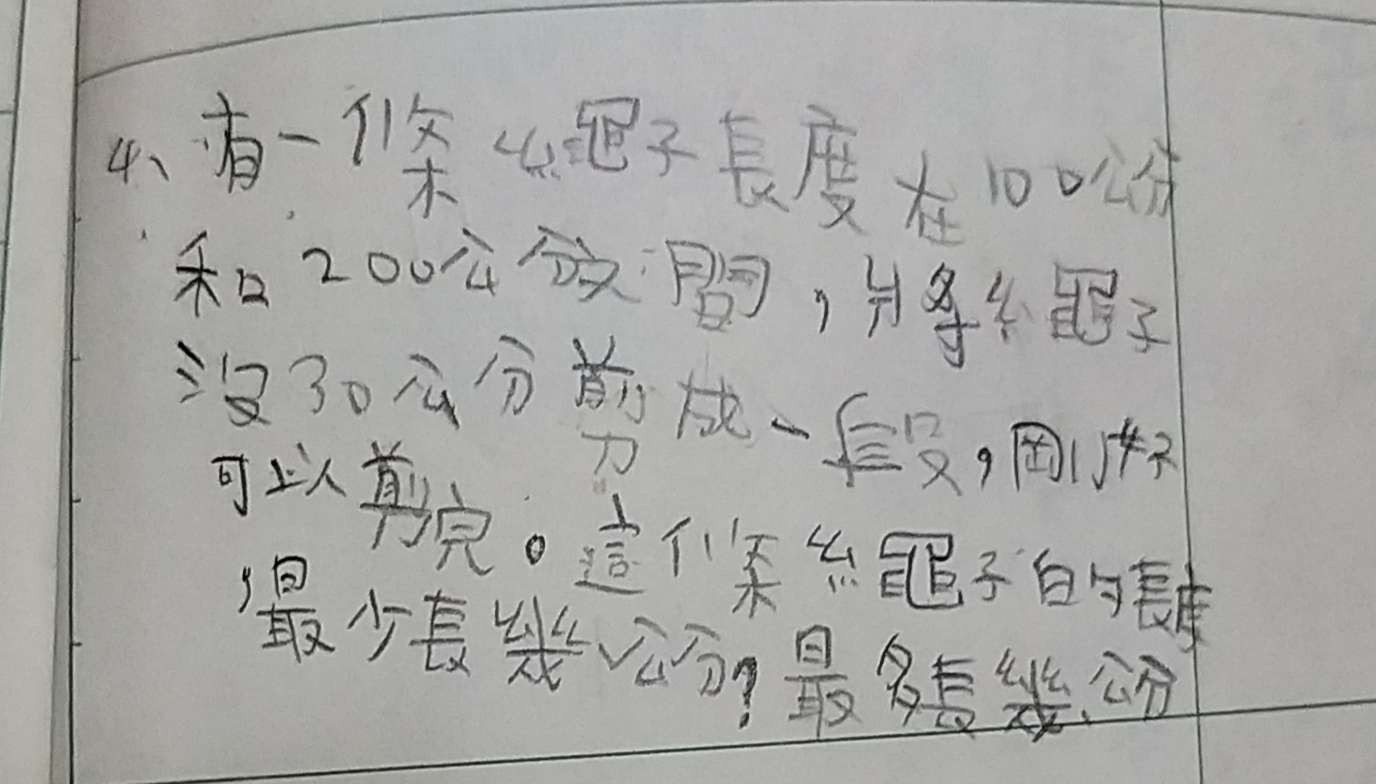 4、有一條繩子長度在100公分
和200公分之間，將繩子
沒30公分剪成一段，剛好
可以剪完。這條繩子的長度
，最少長幾公分？最多長幾公分